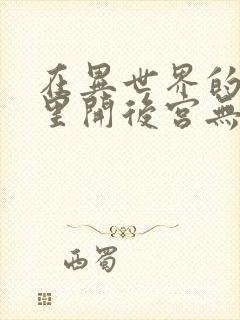 在異世界的
里開後宮無
西蜀